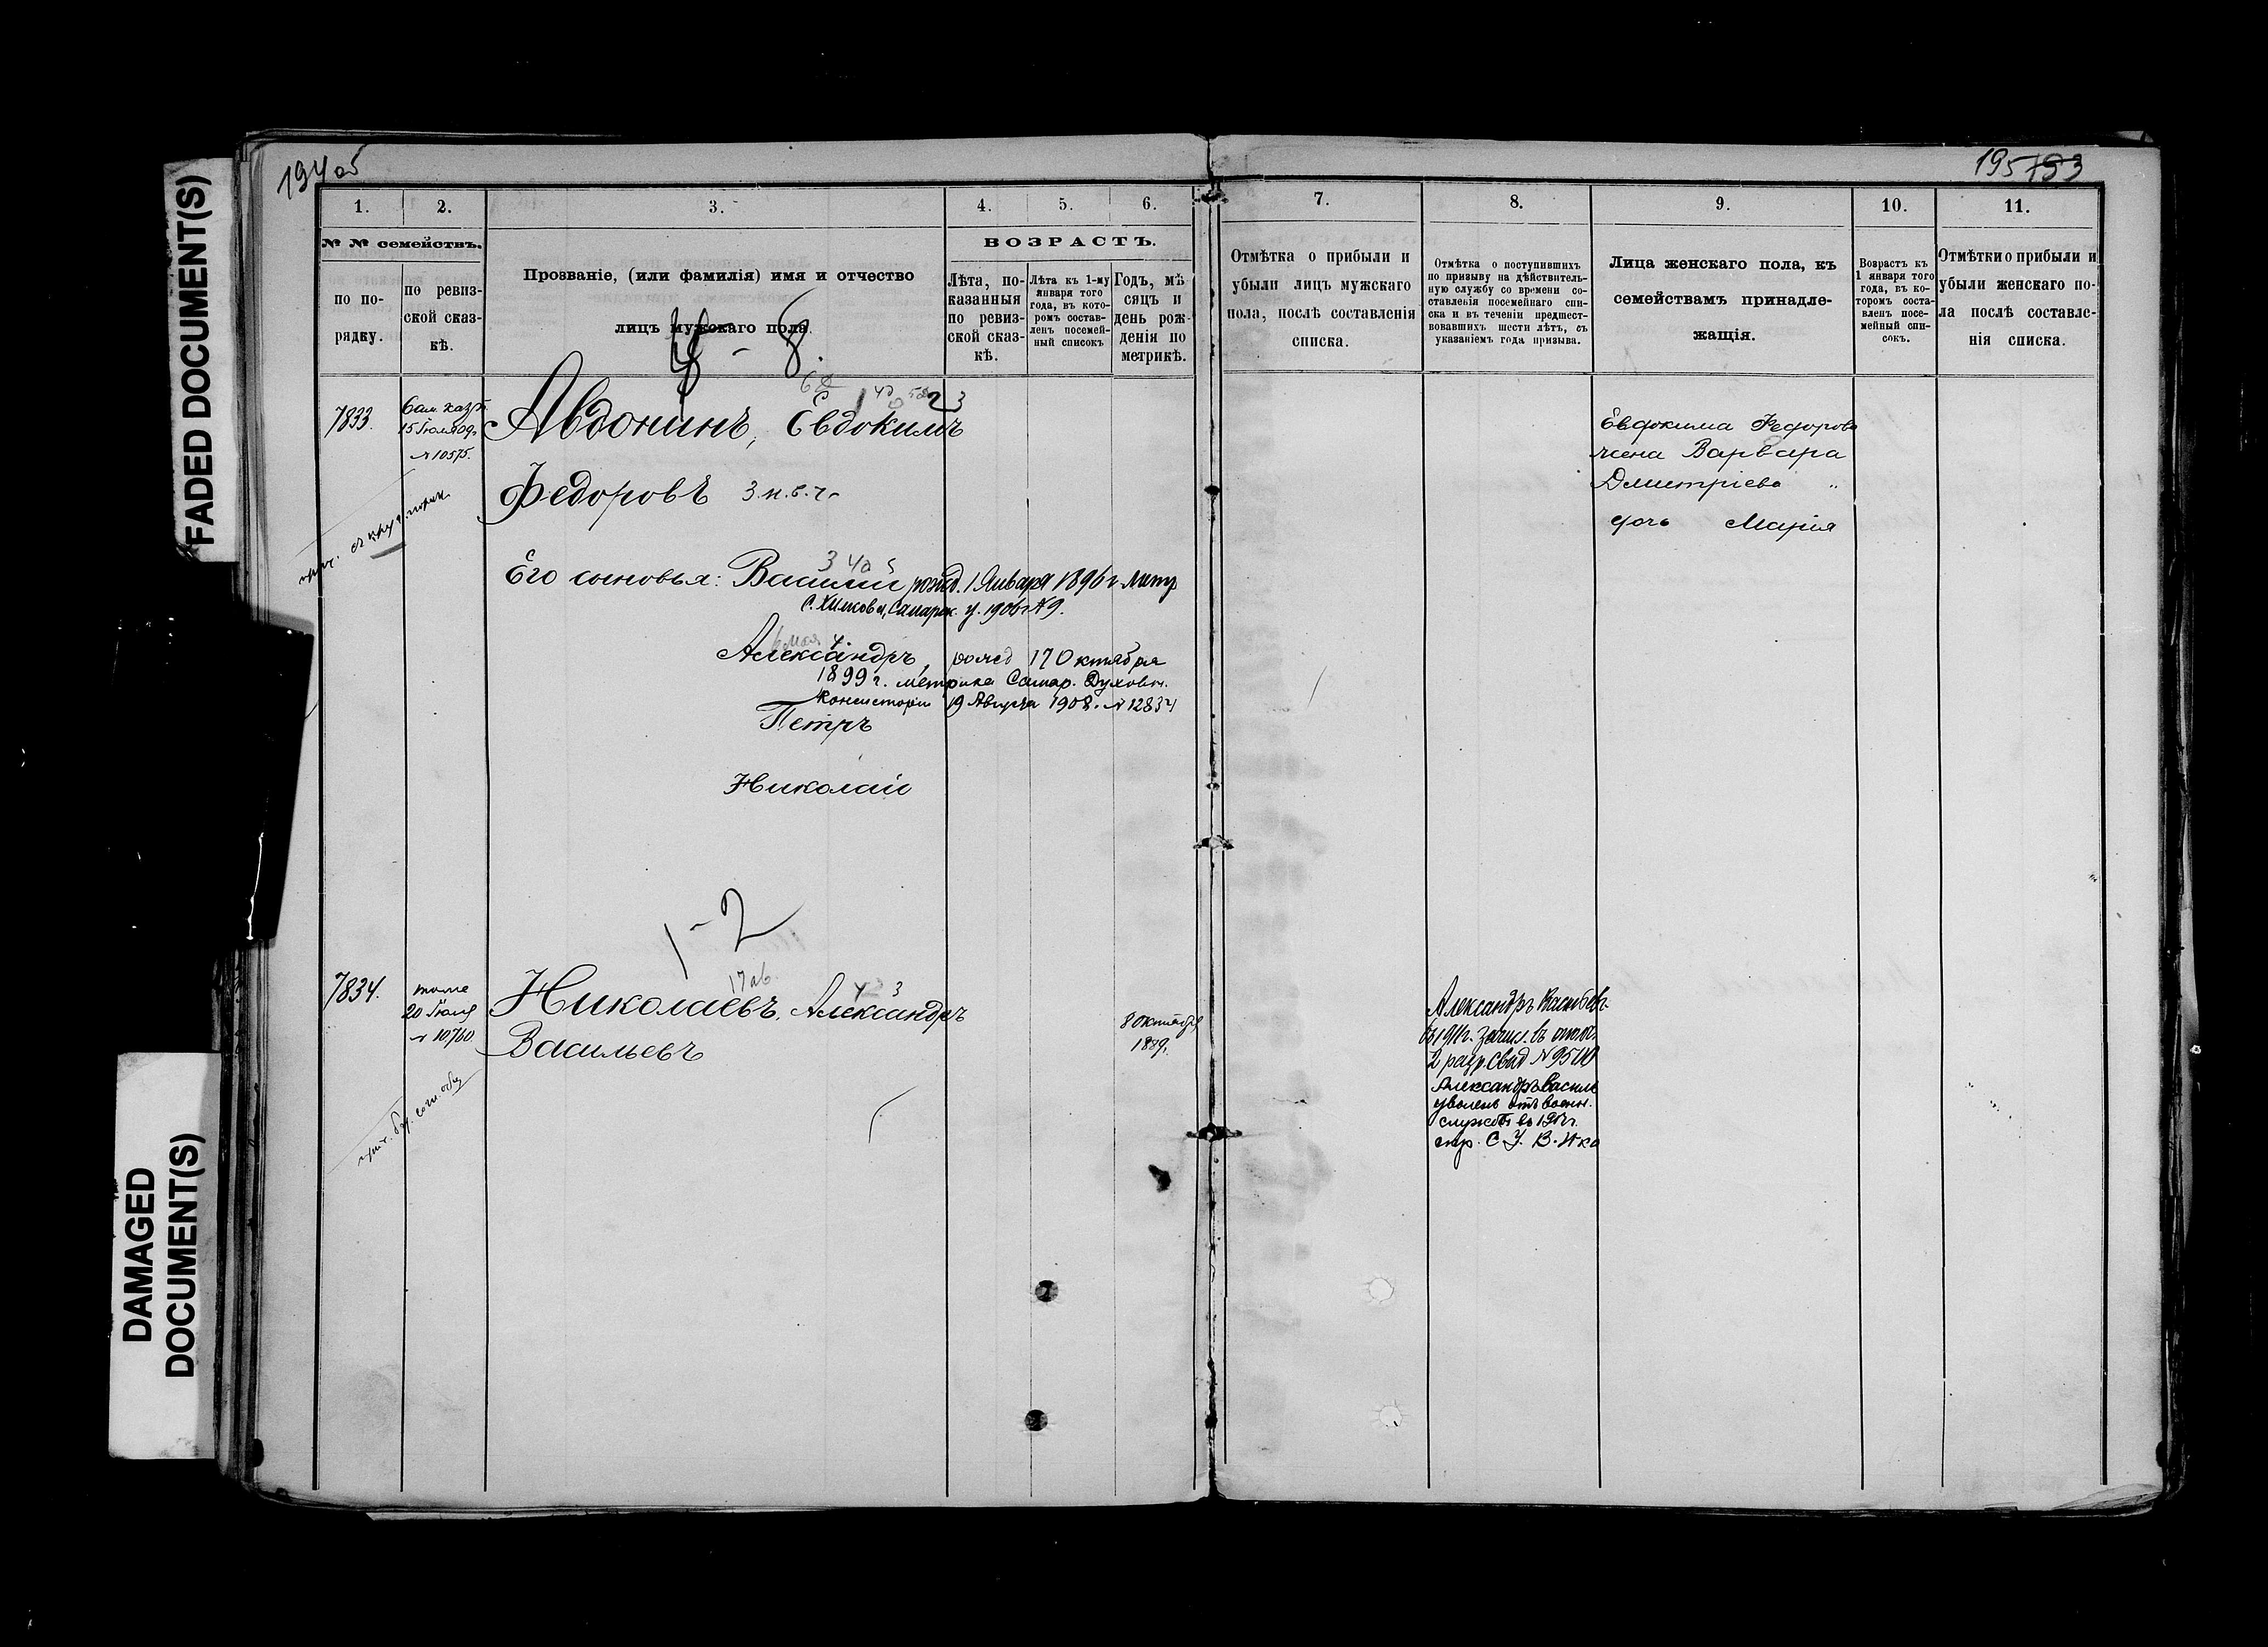 FADED DOCUMENT(S)
DAMAGED
DOCUMENT(S)
194 об
195 193
1. 2. 3. 4. 5. 6.
№ № семействъ.
по по-
рядку.
по ревиз-
ской сказ-
кѣ.
Прозваніе, (или фамилія) имя и отчество
лицъ мужскаго пола.
ВОЗРАСТЪ.
Лѣта, по-
казанныя
по ревиз-
ской сказ-
кѣ.
Лѣта къ 1-му
января того
года, въ кото-
ромъ состав-
ленъ посемей-
ный список
Годъ, мѣ-
сяцъ и
день рож-
денія по
метрикѣ.
8.
7833.
15 Іюля 09 г.
№ 10575.
Авдонинъ, Евдокимъ
Федоровъ
Его сыновья: Василий рожд. 1 Января 1896 г. метр
Самарск. у. 1906 г. № 9.
Александръ, рожд 17 Октября
1899 г. метрика Самар. Духовн.
Консисторіи 19 Августа 1908. № 12834
Петръ
Николай
1 - 2
7834.
тоже
20 Іюля
№ 10760.
Николаевъ, Александръ
Васильевъ
8 Октября
1889.
7. 8. 9. 10. 11.
Отмѣтка о прибыли и
убыли лицъ мужскаго
пола, послѣ составленія
списка.
Отмѣтка о поступившихъ
по призыву на дѣйствитель-
ную службу со времени со-
ставленія посемейнаго спи-
ска и въ теченіи предшест-
вовавшихъ шести лѣтъ, съ
указаніемъ года призыва.
Лица женскаго пола, къ
семействамъ принадле-
жащія.
Возрастъ къ
1 января того
года, въ ко-
торомъ соста-
вленъ посе-
мейный спи-
сокъ.
Отмѣтки о прибыли и
убыли женскаго по-
ла послѣ составле-
нія списка.
Евдокима Федорова
жена Варвара
Дмитріева
дочь Марія
Александръ Васильевъ
1911 г. зачис. въ ополч.
2 разр. Свид №
Александръ Василь
уволенъ отъ воен.
службы въ